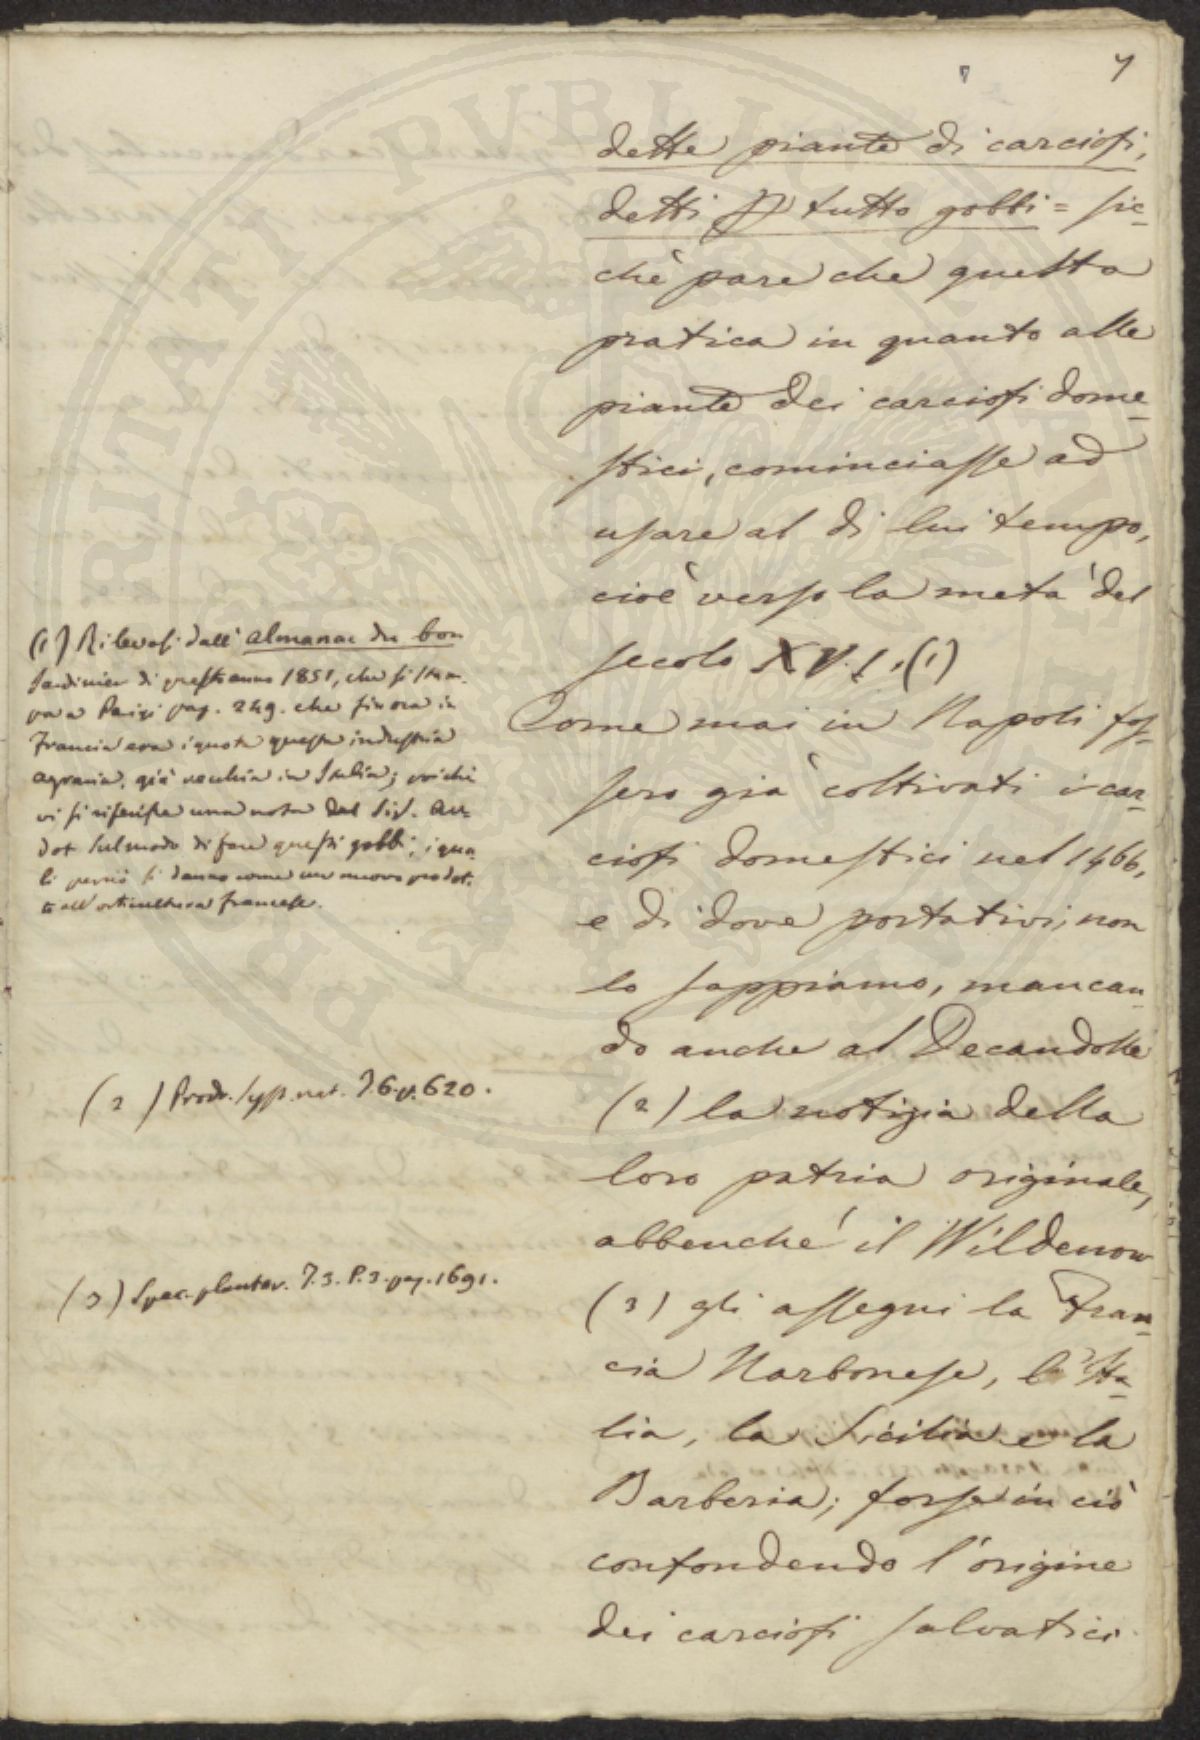 7
7
dette piante di carciofi,
detti p tutto gobbi = sic-
chè pare che questa
pratica in quanto alle
piante dei carciofi dome-
stici, cominciasse ad
usare al di lui tempo,
cioè verso la metà del
secolo XVI. (1)
Come mai in Napoli fos-
sero già coltivati i car-
ciofi domestici nel 1466,
e di dove portativi, non
lo sappiamo, mancan-
do anche al Decandolle
(2) la notizia della
loro patria originale,
abbenché il Wildenow
(3) gli assegni la Fran-
cia Narbonese, l'Ita-
lia, la Sicilia e la
Barberia; forse in ciò
confondendo l'origine
dei carciofi salvatici
(1) Rilevasi dall' almanac du bon
Jardinier di quest'anno 1851, che si stam-
pa a Parigi pag. 249. che fin ora in
Francia era ignota questa industria
agraria, già vecchia in Italia; poichè
vi si riferisce una nota del Sig.
sul modo di fare questi gobbi, i qua-
li perciò si danno come un nuovo prodot-
to all'orticultura francese.
(2) Prodr. Syst. nat. T. 6. p. 620.
(3) Spec. plantar. T. 3. P. 3. pag. 1691.
PRITATI PUBLICAE